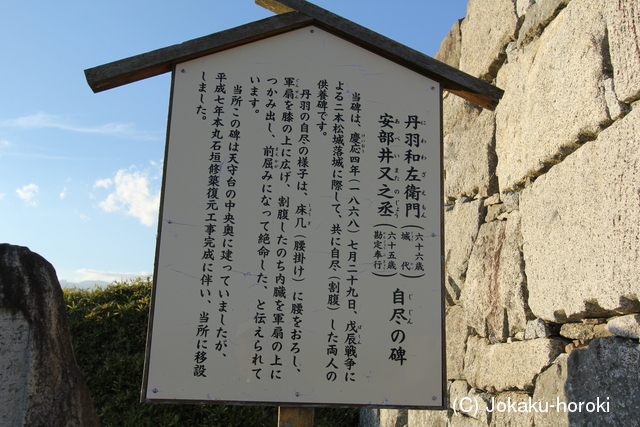 丹羽和左衛門（六十六歳 城代）
安部井又之丞（六十五歳 勘定奉行）
自尽の碑
当碑は、慶応四年（一八六八）七月二十九日、戊辰戦争に
よる二本松城落城に際して、共に自尽（割腹）した両人の
供養碑です。
丹羽の自尽の様子は、床几（腰掛け）に腰をおろし、
軍扇を膝の上に広げ、割腹したのち内臓を軍扇の上に
つかみ出し、前屈みになって絶命した、と伝えられて
います。
当所この碑は天守台の中央奥に建っていましたが、
平成七年本丸石垣修築復元工事完成に伴い、当所に移設
しました。
(C) Jokaku-horoki